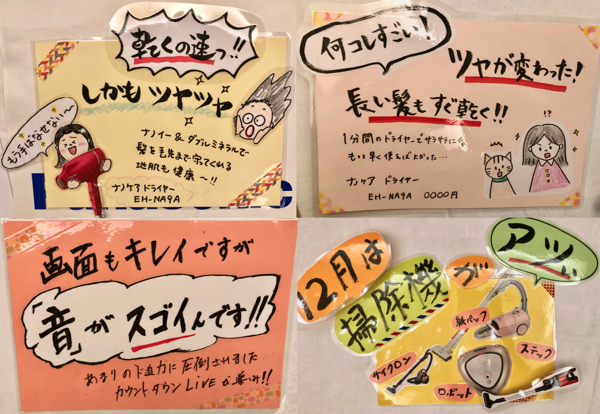 乾くの速っ!!
しかもツヤツヤ
もう手ばなせない〜
ナノイー&ダブルミネラルで
髪を毛先まで守ってくれる
地肌も健康〜!!
ナノケアドライヤー
EH-NA9A
何コレすごい!
ツヤが変わった!
長い髪もすぐ乾く!!
1分間のドライヤーでサラサラに
もっと早く使えば良かった…
!?
ナノケア ドライヤー
EH-NA9A 0000円
画面もキレイですが
「音」がスゴイんです!!
あまりのド迫力に圧倒されました…
カウントダウンLiveが楽しみ!!
12月は
掃除機
が
アツい
紙パック
サイクロン
スティック
ロボット